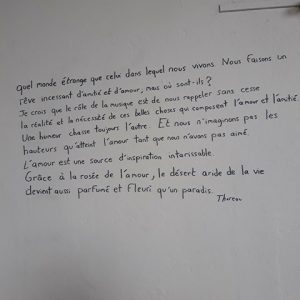 Quel monde étrange que celui dans lequel nous vivons. Nous faisons un
rêve incessant d'amitié et d'amour, mais où sont-ils ?
Je crois que le rôle de la musique est de nous rappeler sans cesse
la réalité et la nécessité de ces belles choses qui composent l'amour et l'amitié.
Une humeur chasse toujours l'autre. Et nous n'imaginons pas les
hauteurs qu'atteint l'amour tant que nous n'avons pas aimé.
L'amour est une source d'inspiration intarissable.
Grâce à la rosée de l'amour, le désert aride de la vie
devient aussi parfumé et fleuri qu'un paradis.
Thoreau